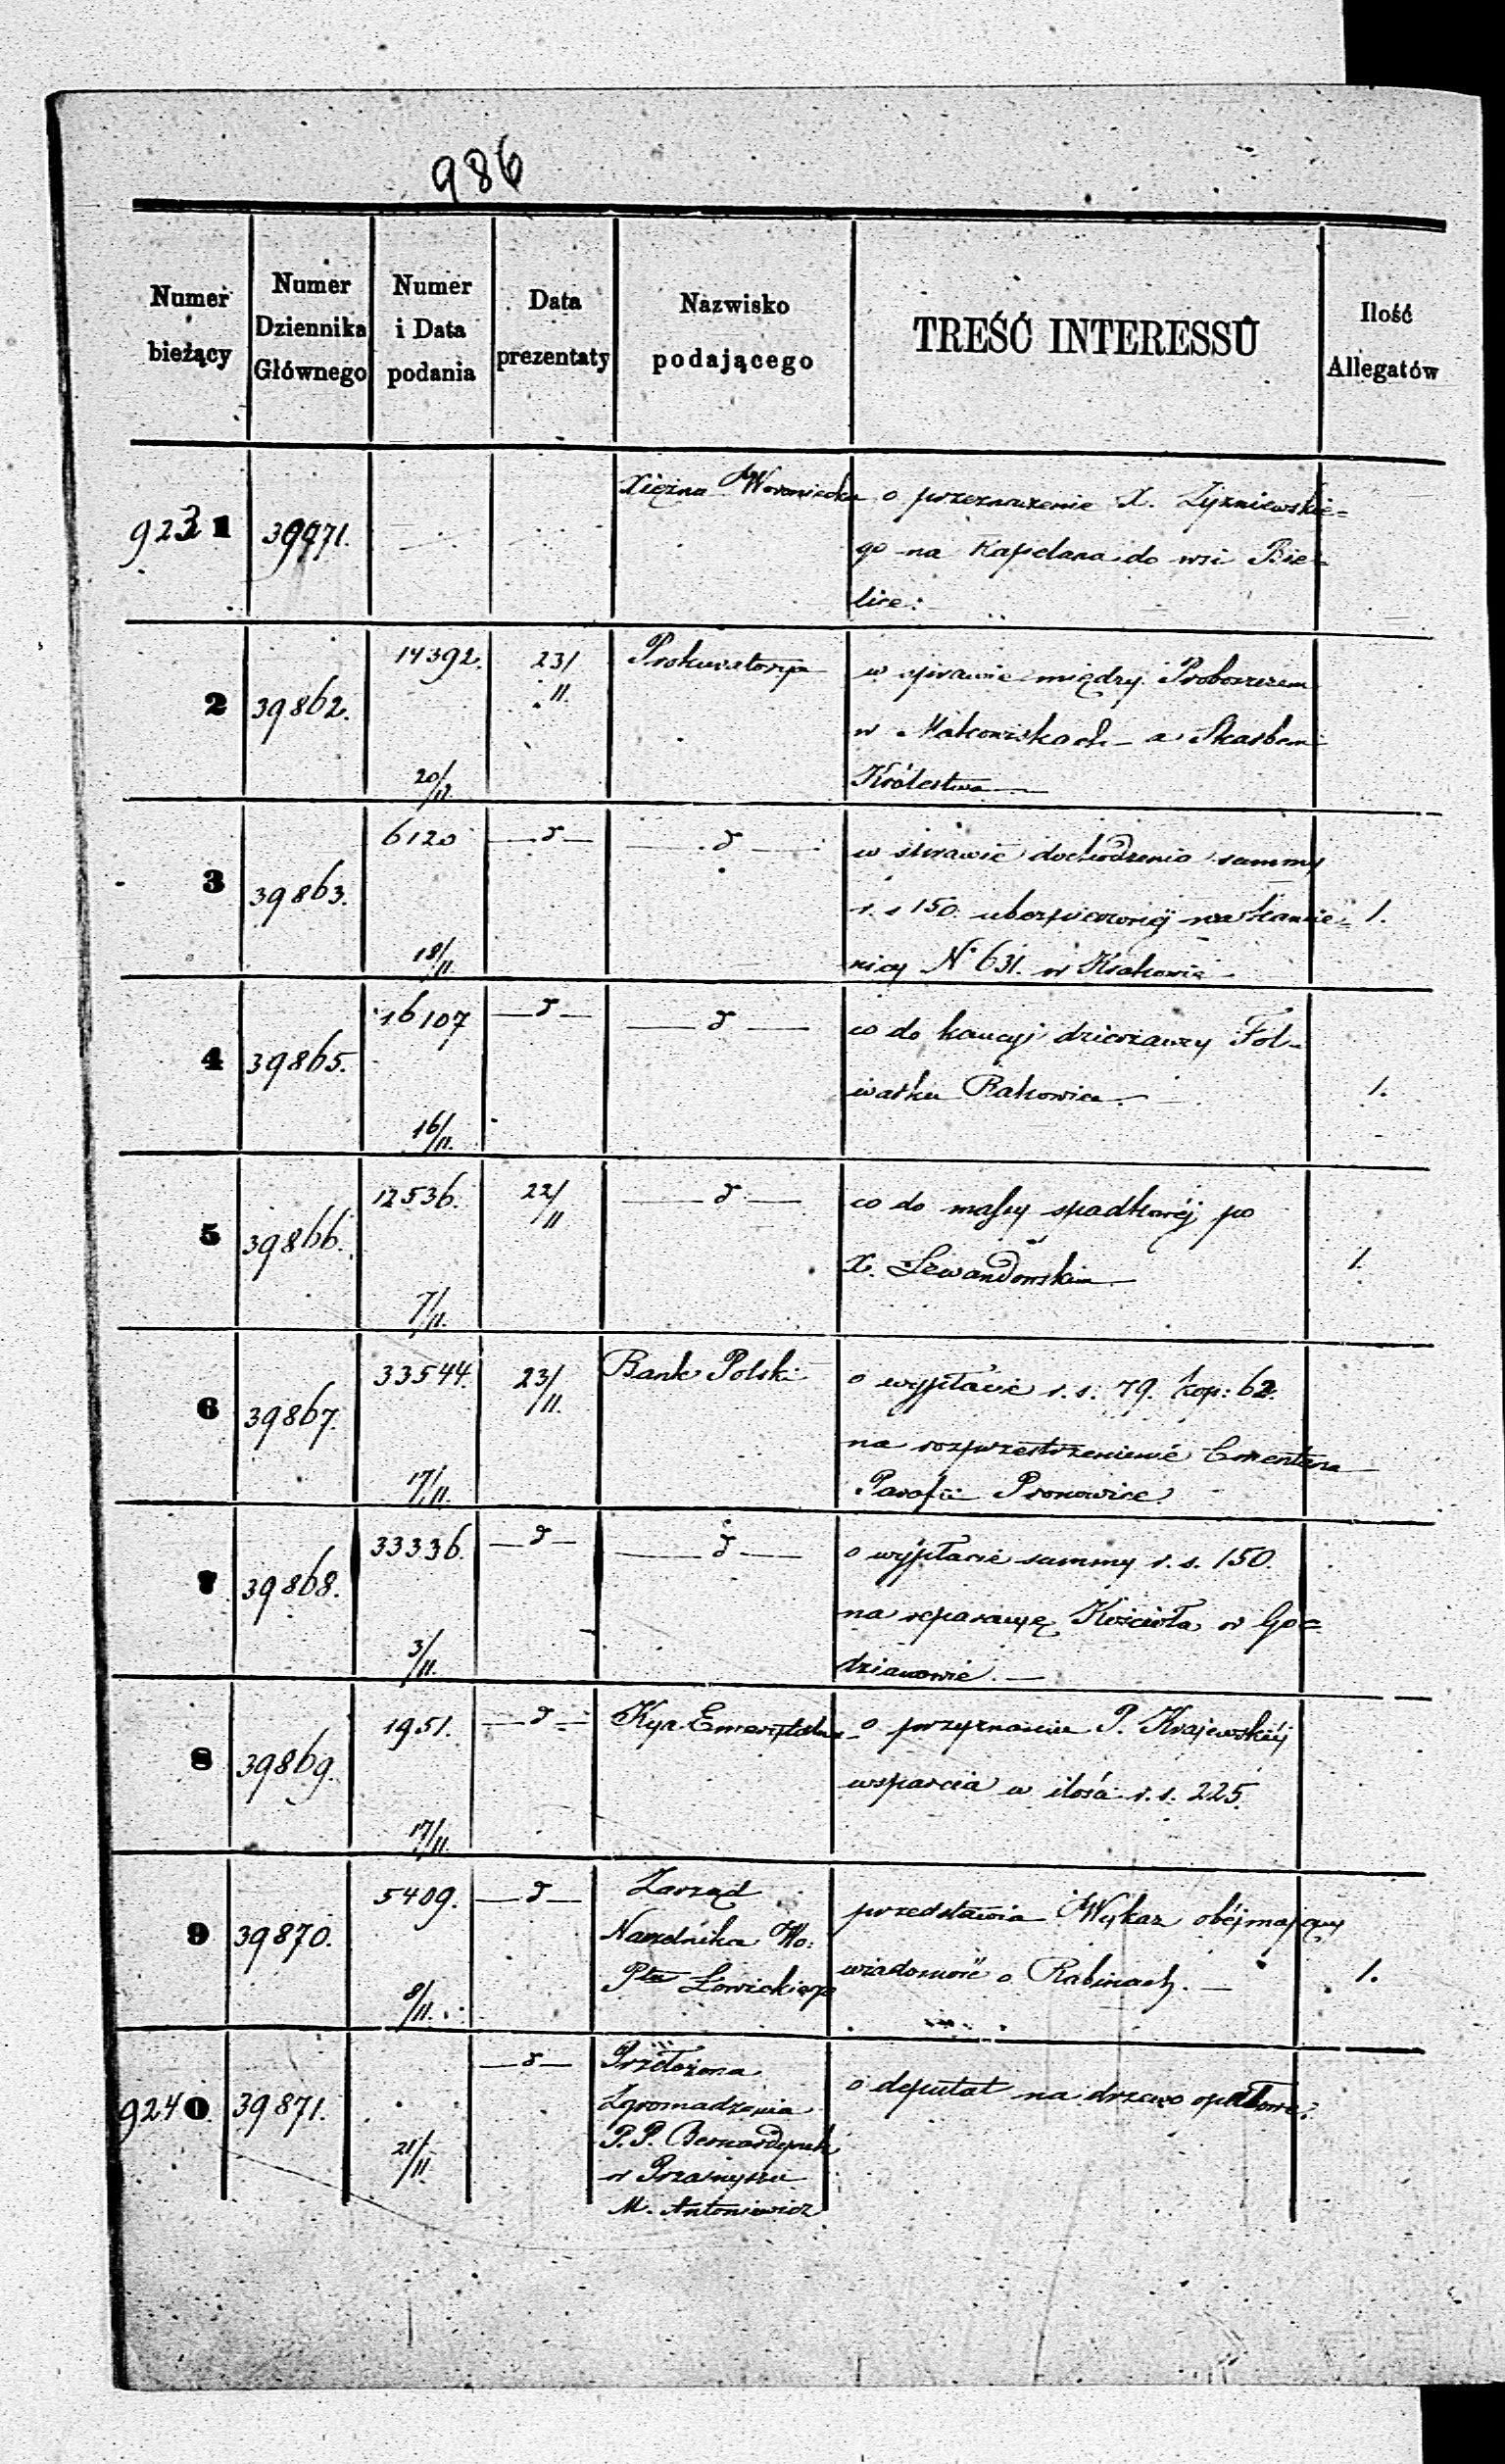 986
Numer bieżący
Numer Dziennika Głównego
Numer i Data podania
Data prezentaty
Nazwisko podającego
TREŚĆ INTERESSU
Ilość Allegatów
9231 39971. Xiężna Woroniecka o przeznaczenie X. Żyzniewskie=
go na Kapelana do wsi Bie=
lice.
2 39862. 14392. 20/11. 23/11. Prokuratorya w sprawie między Proboszczem
w Makowiskach a Skarbem
Królestwa
3 39863. 6120 18/11. d d w sprawie dochodzenia summy
r. s 150. ubezpieczonéj na kamie=
nicy No 631. w Krakowie
1.
4 39865. 16107 16/11. d d co do kaucyi dzierżawcy Fol=
warku Rakowice.
1.
5 39866. 12536. 7/11. 22/11 d co do massy spadkowéj po
X. Lewandowskim
1.
6 39867. 33544. 17/11. 23/11. Bank Polski o wypłacie r. s. 79. kop: 62.
na rozprzestrzenienie Cmentarza
Parafii Pronowice
7 39868. 33336. 3/11. d d o wypłacie summy r. s. 150.
na reparacyę Kościoła w Go=
dzianowie.
8 39869. 1951. 17/11. d Emerytalna o przyznaniu P. Krajewskiéj
wsparcia w ilości r. s. 225.
9 39870. 5409. 8/11. d Zarząd
Naczelnika Wo:
Ptu Łowickiego
przedstawia Wykaz obéjmający
wiadomość o Rabinach.
1.
9240. 39871. 21/11. d Przełożona
Zgromadzenia
P.P. Bernardynek
w Przasnyszu
M. Antoniewicz
o deputat na drzewo opałowe.